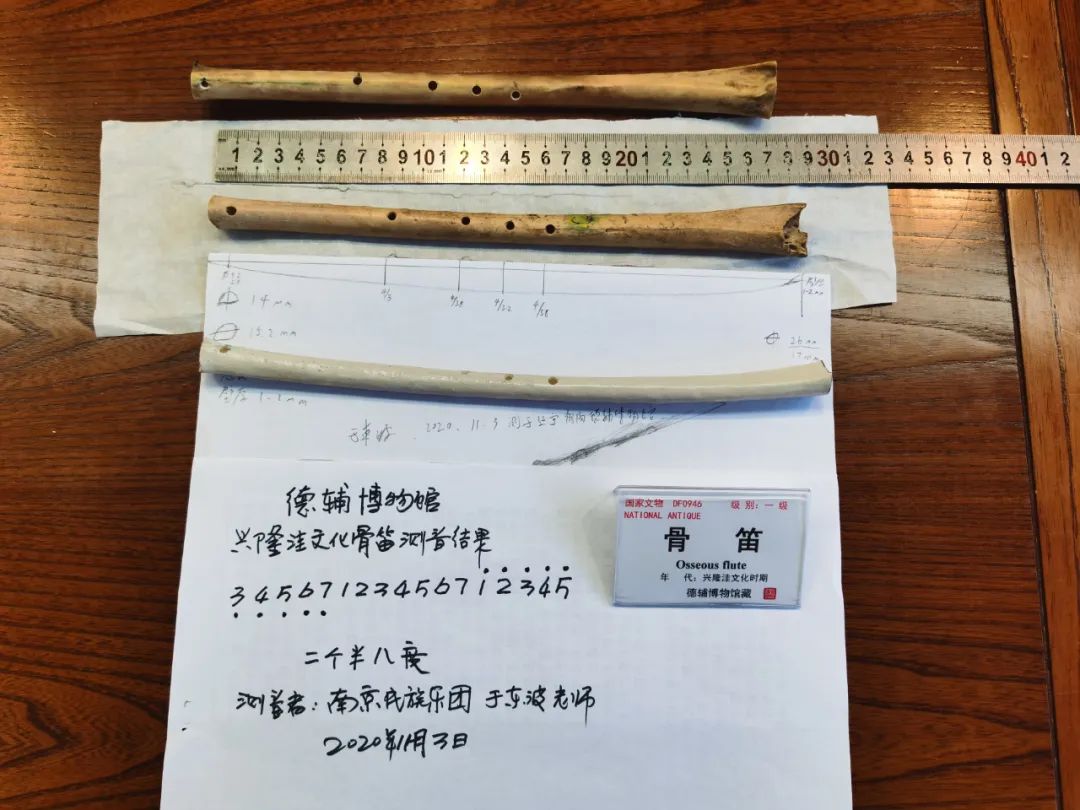 1 2 3 4 5 6 7 8 9 10 1 2 3 4 5 6 7 8 9 20 1 2 3 4 5 6 7 8 9 30 1 2 3 4 5 6 7 8 9 40 1 2
14 mm
15.2 mm
26 mm
17 mm
壁厚 1.2mm
2020.11.3
德辅博物馆
兴隆洼文化骨笛测音结果
3 4 5 6 7 1 2 3 4 5 6 7 1 2 3 4 5
二个半八度
测音者：南京民族乐团 于东波老师
2020年11月3日
国家文物 DF0946 级别：一级
NATIONAL ANTIQUE
骨 笛
Osseous flute
年 代：兴隆洼文化时期
德辅博物馆藏